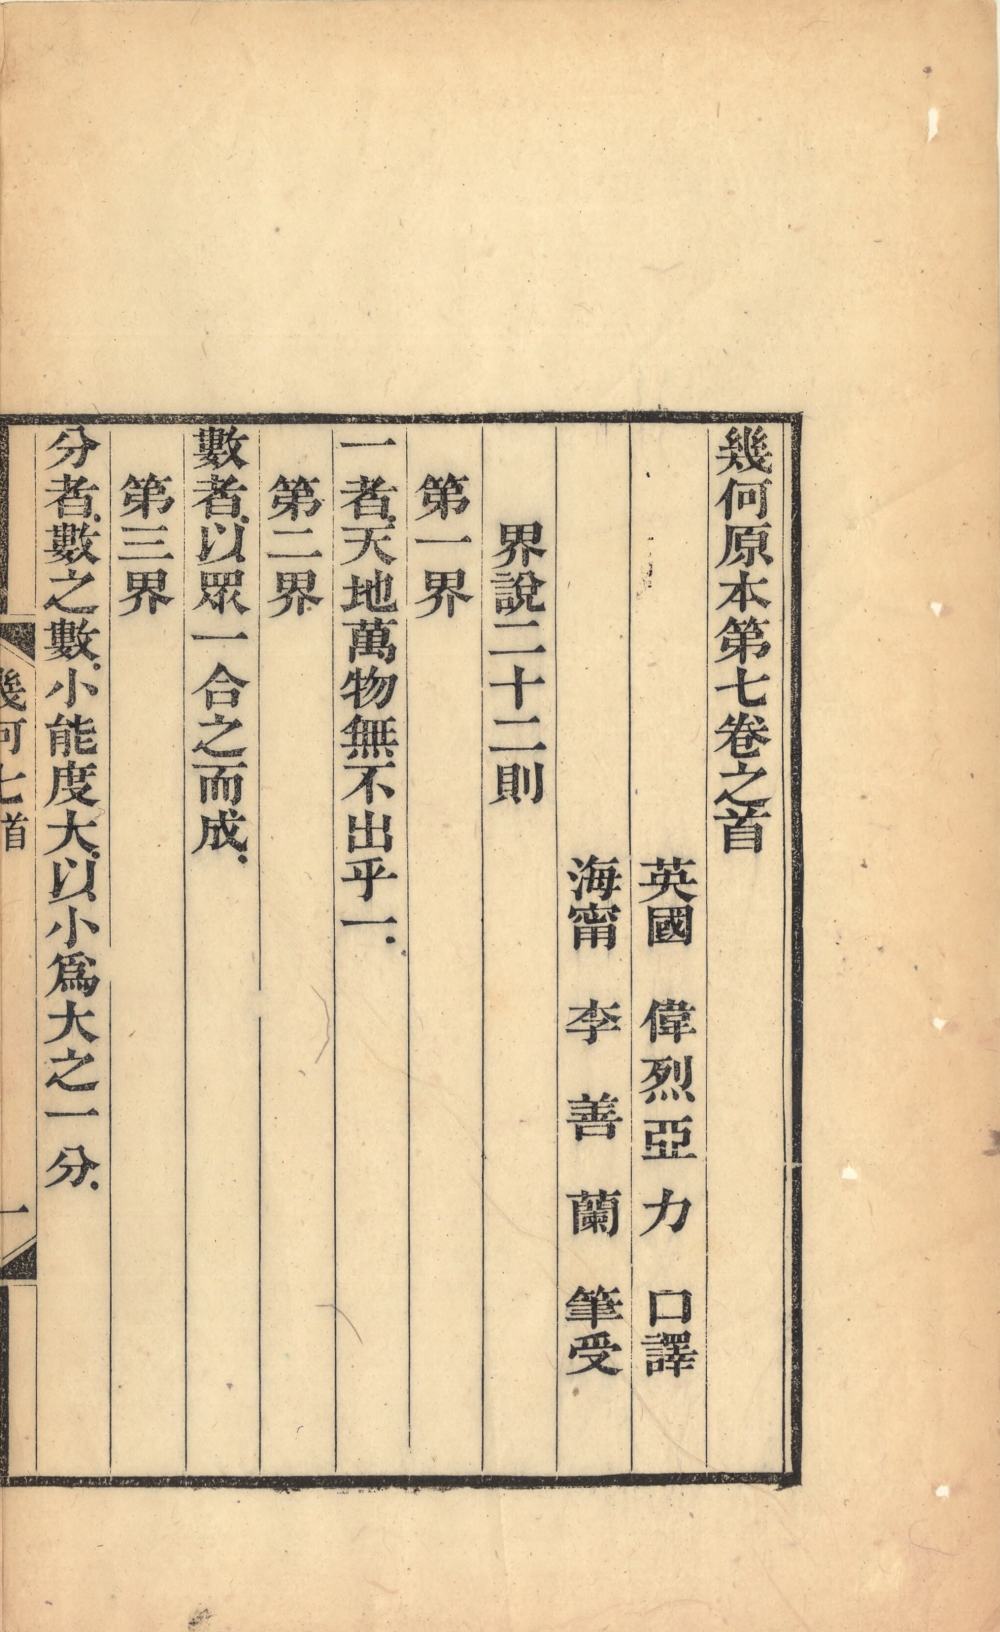 幾何原本第七卷之首
英國 偉烈亞力 口譯
海甯 李善蘭 筆受
界說二十二則
第一界
一者.天地萬物無不出乎一.
第二界
數者.以眾一合之而成.
第三界
分者.數之數.小能度大.以小爲大之一分.
幾何七首 一